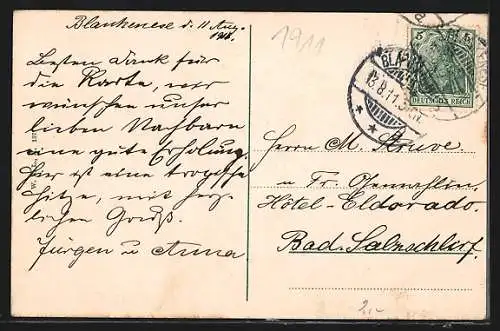 Blankenese d. 11 Aug.
1911.
Besten Dank für
die Karte, wir
wünschen unsern
lieben Nachbarn
eine gute Erholung.
Hier ist eine tropische
Hitze, mit herz
lichen Gruß.
Jürgen u Anna
1911
5
DEUTSCHES REICH
BLANKENESE
13.8.11.
Herrn M. Struve
u Fr. Gemahlin
Hôtel-Eldorado.
Bad-Salzschlirf.
2,-